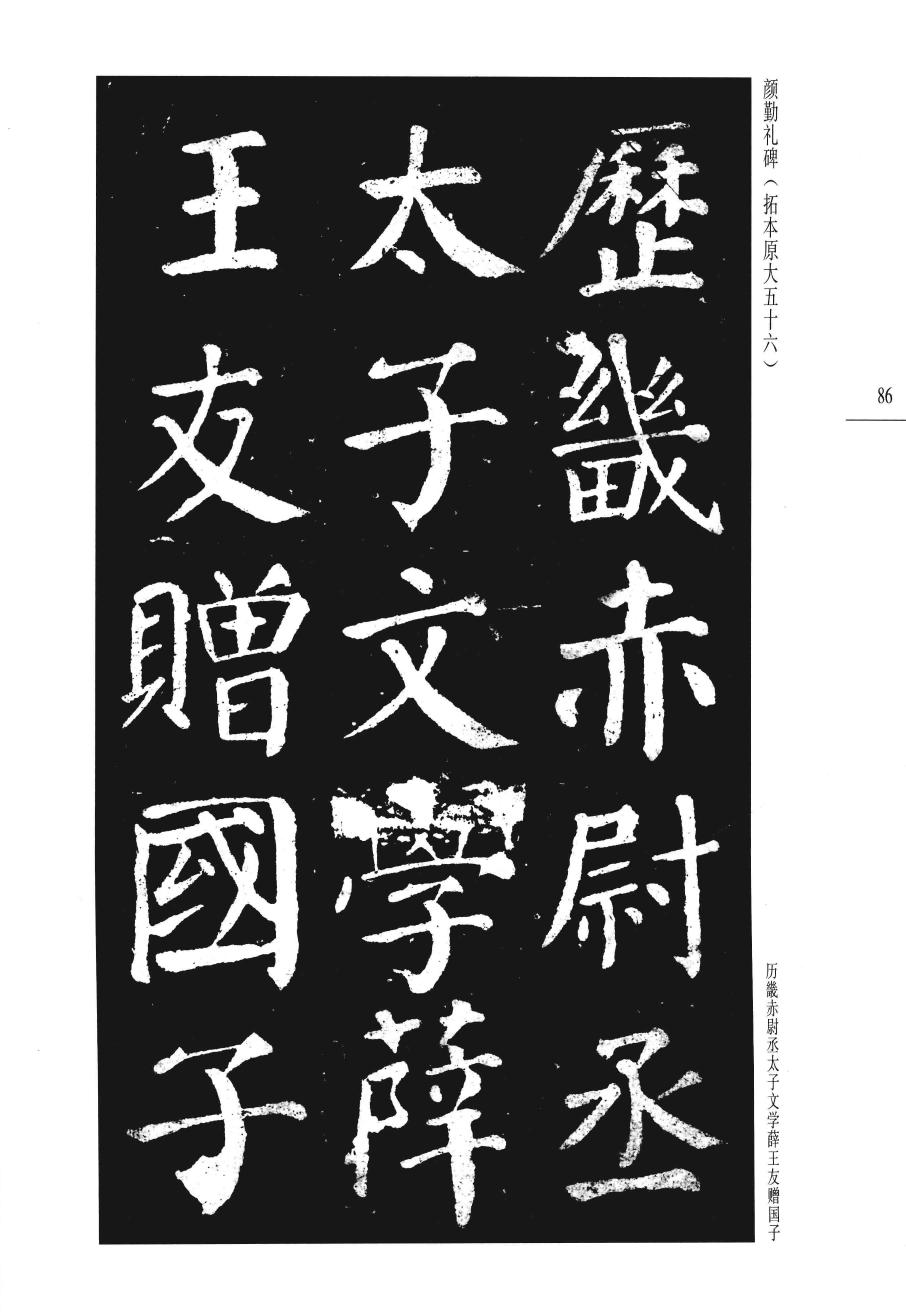 颜勤礼碑（拓本原大五十六）
86
歷畿赤尉丞
太子文學薛
王友贈國子
历畿赤尉丞太子文学薛王友赠国子